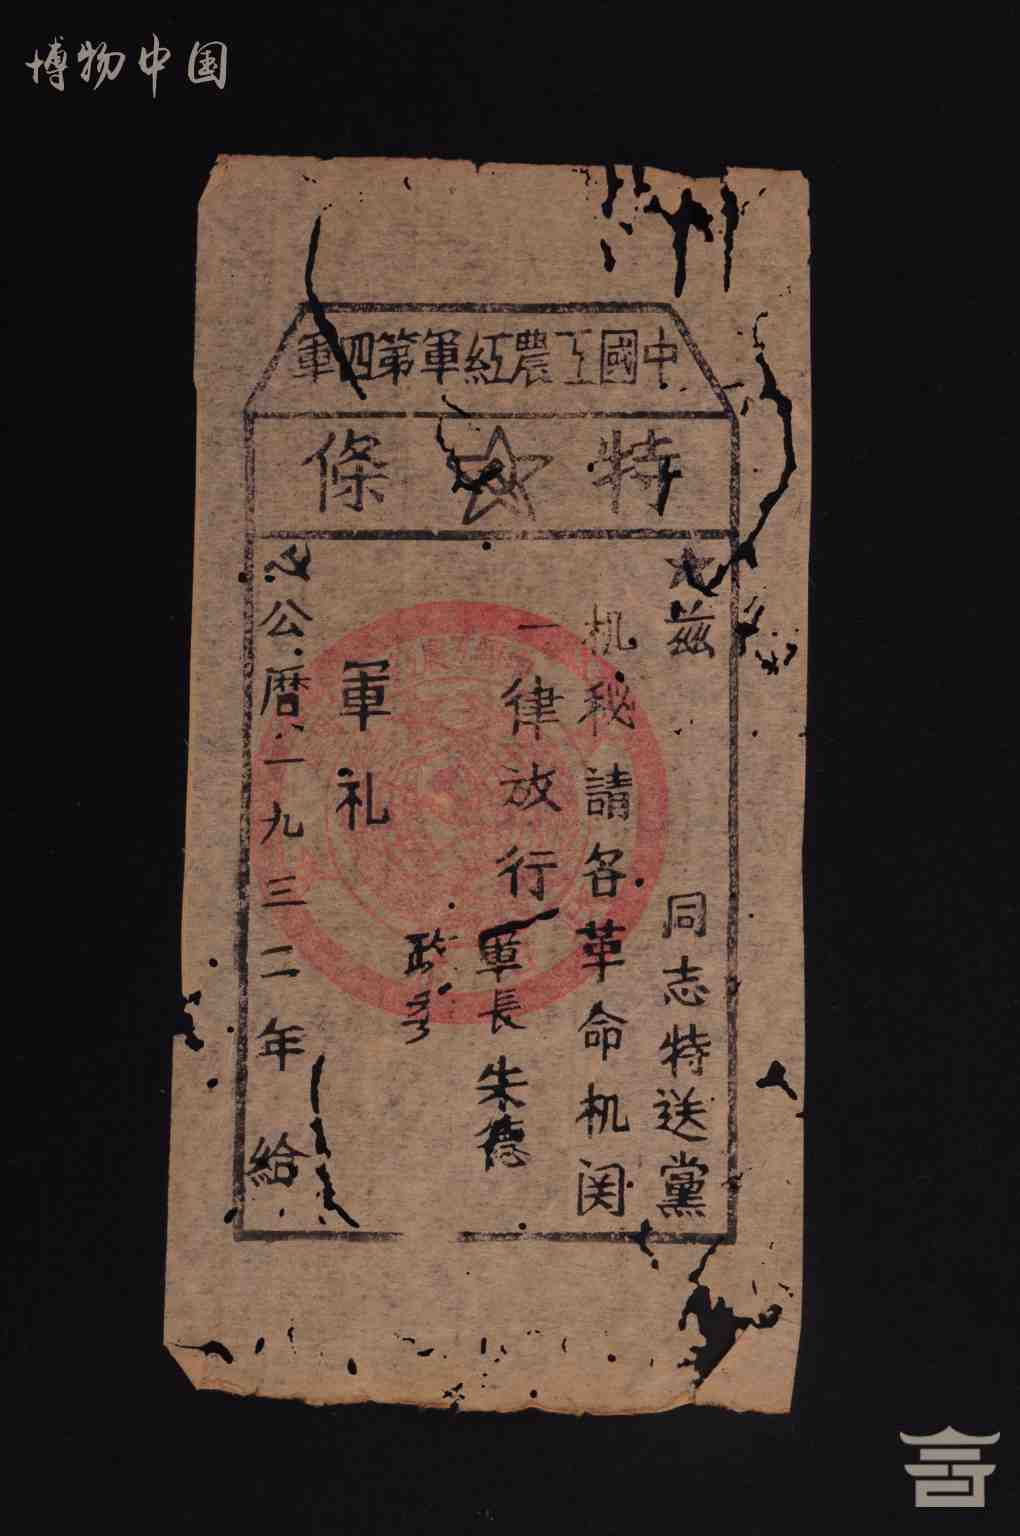 博物中国
中國工農紅軍第四軍
特條
兹 同志特送黨
机秘請各革命机関
一律放行
軍長朱德
政
軍礼
公曆一九三二年 給